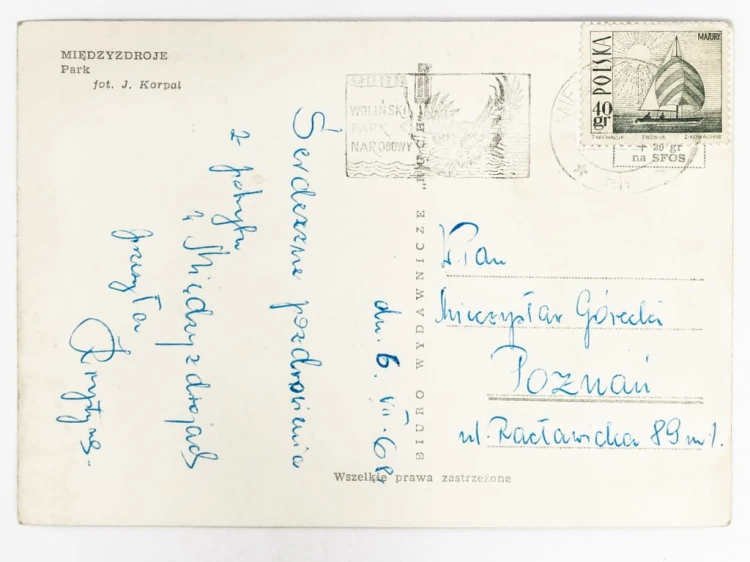 MIĘDZYZDROJE
Park
fot. J. Korpal
WOLIŃSKI
PARK
NARODOWY
POLSKA
MAZURY
40
gr
+ 20 gr
na SFOS
Serdeczne pozdrowienia
z pobytu
w Międzyzdrojach
przesyła
Krystyna.
dn. 6. VII. 68r.
BIURO WYDAWNICZE „RUCH”
W.Pan
Mieczysław Górecki
Poznań
ul. Racławicka 89 m 1.
Wszelkie prawa zastrzeżone